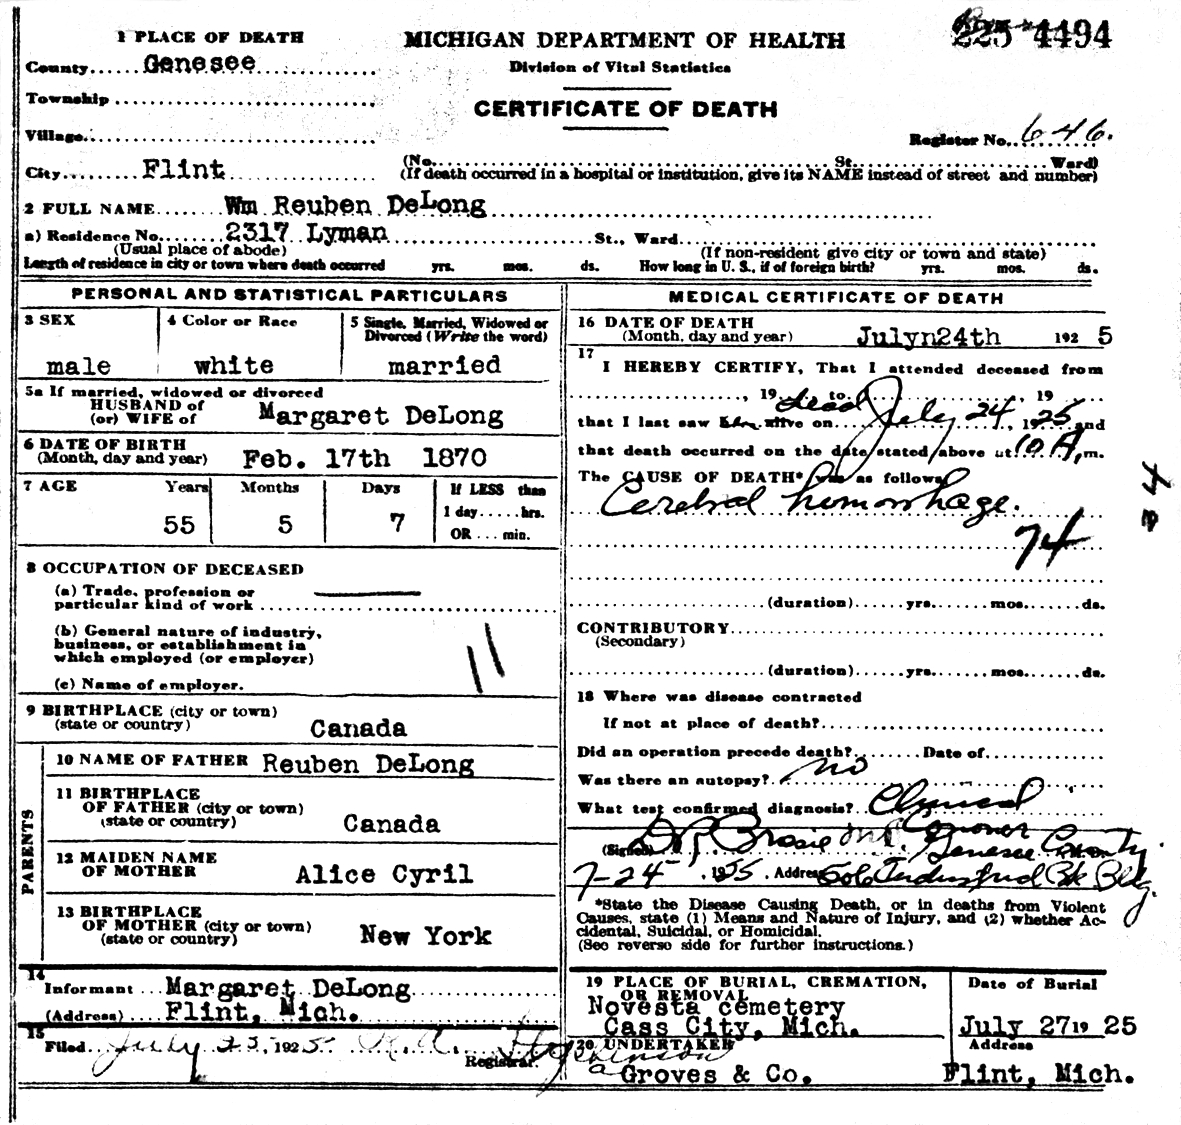 1 PLACE OF DEATH
MICHIGAN DEPARTMENT OF HEALTH
225 4494
County Genesee
Division of Vital Statistics
Township
CERTIFICATE OF DEATH
Village
Register No. 646.
City Flint
(No. St. Ward)
(If death occurred in a hospital or institution, give its NAME instead of street and number)
2 FULL NAME Wm Reuben DeLong
a) Residence No. 2317 Lyman St., Ward
(Usual place of abode) (If non-resident give city or town and state)
Length of residence in city or town where death occurred yrs. mos. ds. How long in U. S., if of foreign birth? yrs. mos. ds.
PERSONAL AND STATISTICAL PARTICULARS
3 SEX
male
4 Color or Race
white
5 Single, Married, Widowed or
Divorced (Write the word)
married
5a If married, widowed or divorced
HUSBAND of
(or) WIFE of Margaret DeLong
6 DATE OF BIRTH
(Month, day and year) Feb. 17th 1870
7 AGE Years Months Days If LESS than
1 day hrs.
55 5 7
OR min.
8 OCCUPATION OF DECEASED
(a) Trade, profession or
particular kind of work
(b) General nature of industry,
business, or establishment in
which employed (or employer)
11
(c) Name of employer.
9 BIRTHPLACE (city or town)
(state or country) Canada
PARENTS
10 NAME OF FATHER Reuben DeLong
11 BIRTHPLACE
OF FATHER (city or town)
(state or country) Canada
12 MAIDEN NAME
OF MOTHER Alice Cyril
13 BIRTHPLACE
OF MOTHER (city or town)
(state or country) New York
14
Informant Margaret DeLong
(Address) Flint, Mich.
15
Filed July 25, 1925 Registrar.
MEDICAL CERTIFICATE OF DEATH
16 DATE OF DEATH
(Month, day and year) Julyn24th 192 5
17
I HEREBY CERTIFY, That I attended deceased from
, 19 to , 19
that I last saw alive on dead July 24, 1925 and
that death occurred on the date stated above at 10 A, m.
The CAUSE OF DEATH* was as follows
Cerebral hemorrhage.
74
34
(duration) yrs. mos. ds.
CONTRIBUTORY
(Secondary)
(duration) yrs. mos. ds.
18 Where was disease contracted
If not at place of death?
Did an operation precede death? Date of
Was there an autopsy? no
What test confirmed diagnosis? Clinical
(Signed) D R Brasie M.D. Coroner Genesee County
7-24 1925. Address 506 Industrial Bk Bldg.
*State the Disease Causing Death, or in deaths from Violent
Causes, state (1) Means and Nature of Injury, and (2) whether Ac-
cidental, Suicidal, or Homicidal.
(See reverse side for further instructions.)
19 PLACE OF BURIAL, CREMATION,
OR REMOVAL
Novesta cemetery
Cass City, Mich.
Date of Burial
July 27 19 25
20 UNDERTAKER
Groves & Co.
Address
Flint, Mich.